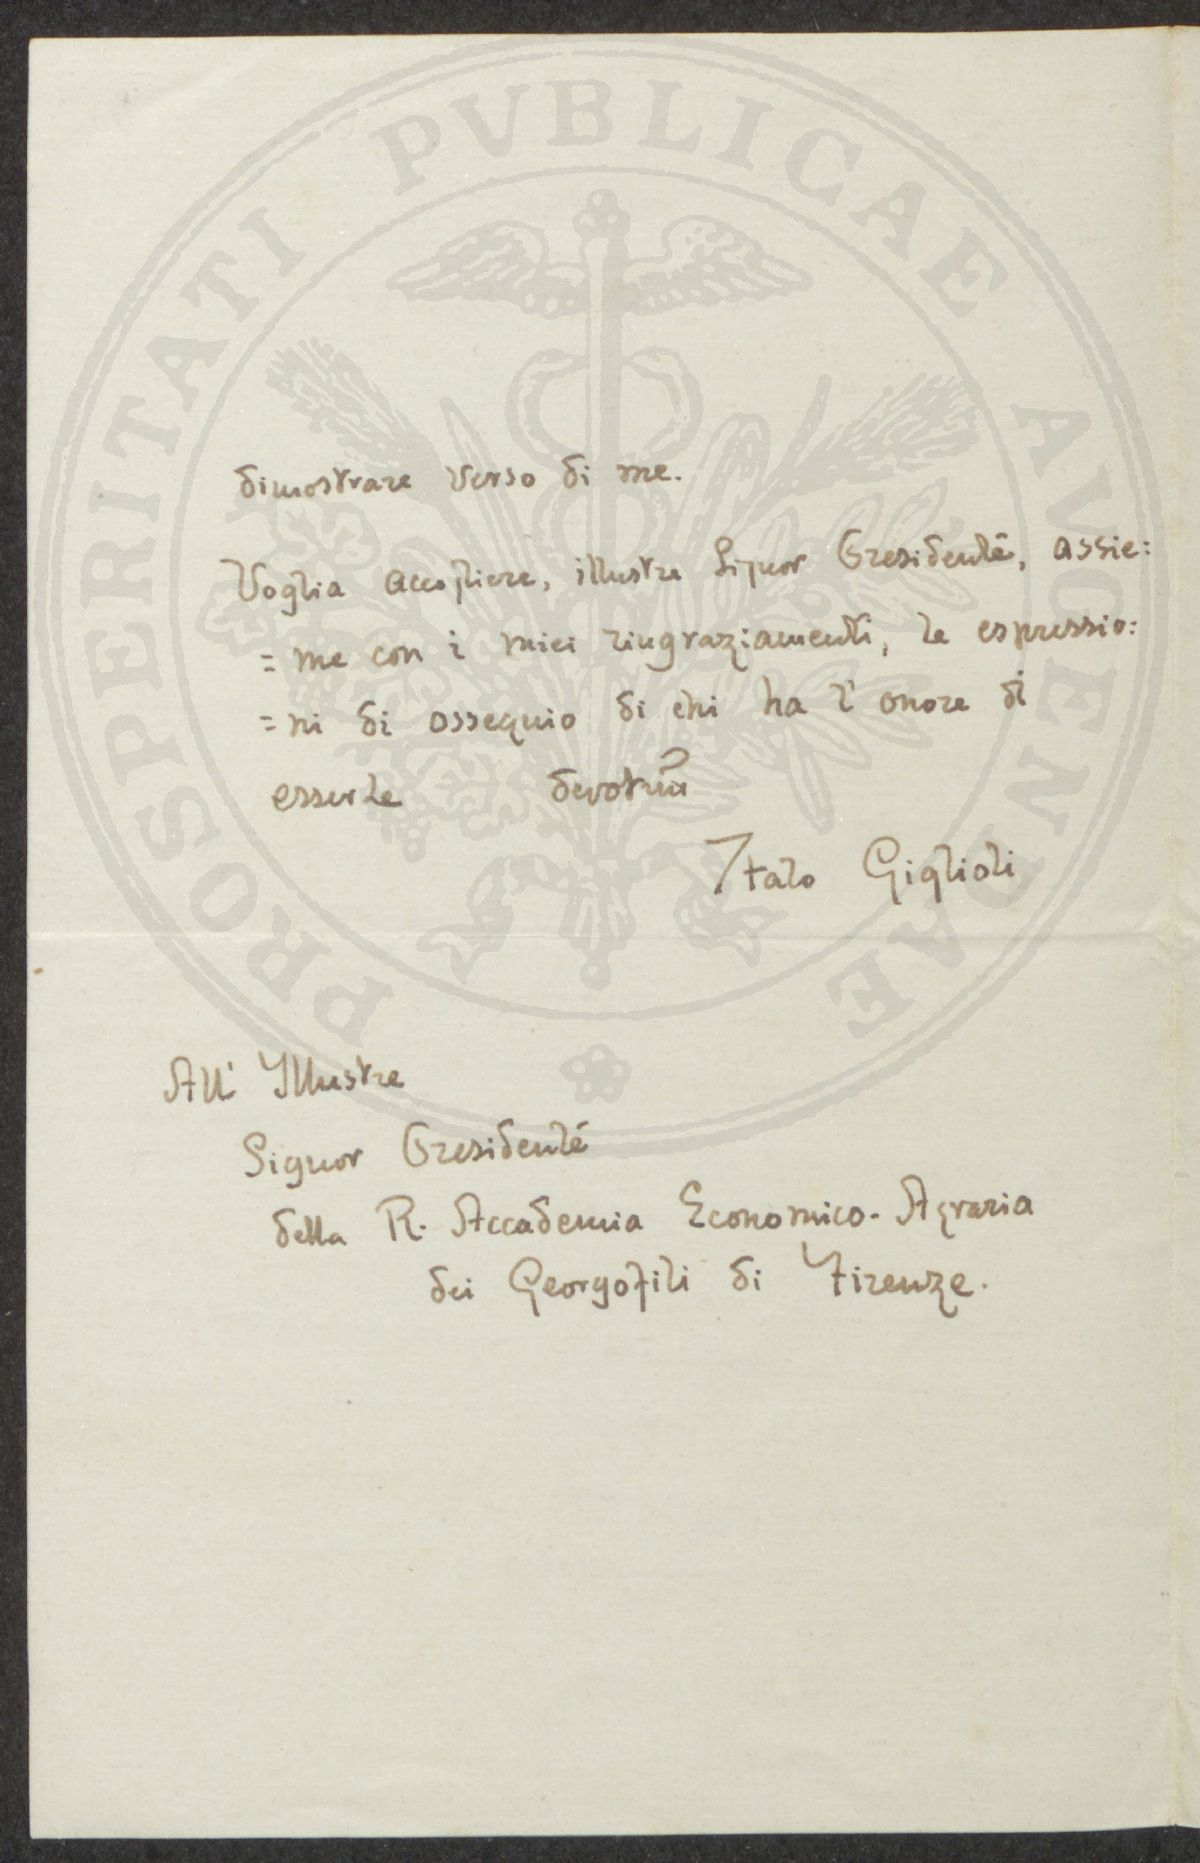 PROSPERITATI PVBLICAE AVGENDAE
dimostrare verso di me.
Voglia accogliere, illustre Signor Presidente, assie:
=me con i miei ringraziamenti, le espressio:
=ni di ossequio di chi ha l'onore di
esserle devotmo
Italo Giglioli
All' Illustre
Signor Presidente
della R. Accademia Economico-Agraria
dei Georgofili di Firenze.